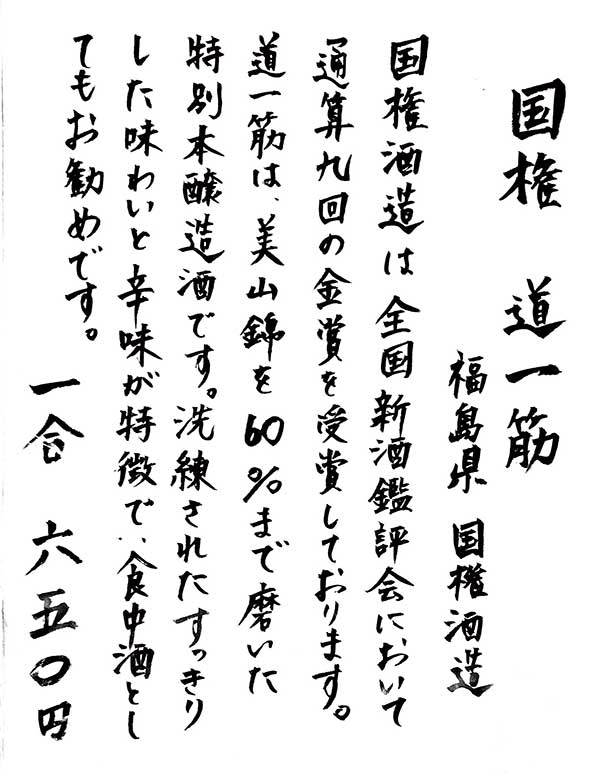 国権 道一筋
福島県 国権酒造
国権酒造は全国新酒鑑評会において
通算九回の金賞を受賞しております。
道一筋は、美山錦を60%まで磨いた
特別本醸造酒です。洗練されたすっきり
した味わいと辛味が特徴で、食中酒とし
てもお勧めです。
一合 六五〇円